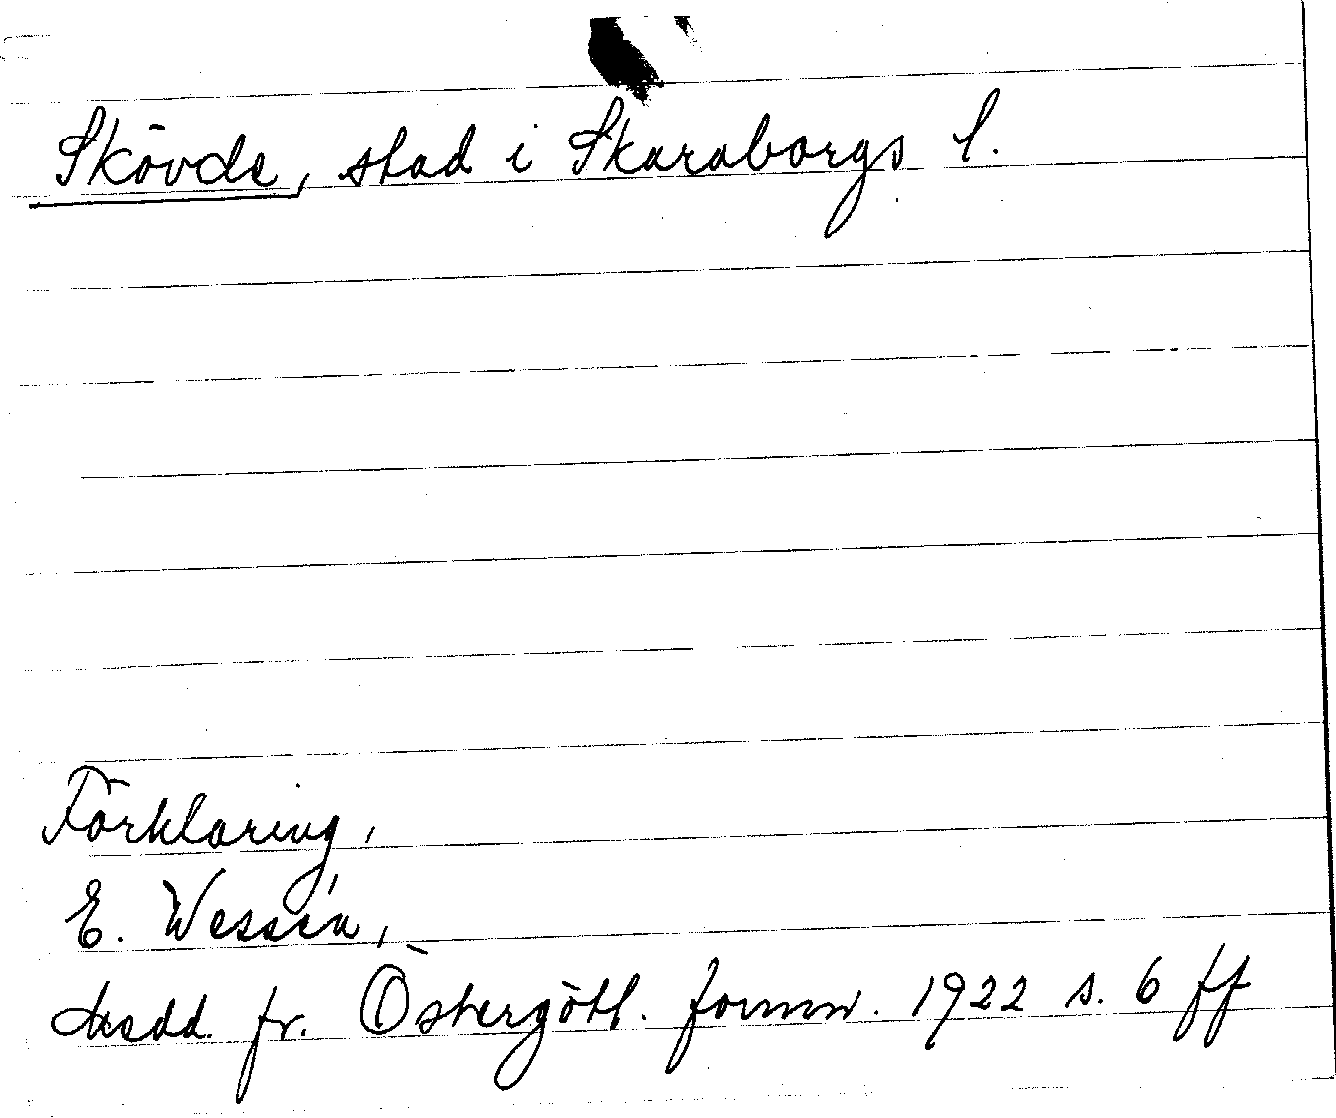 Skövde, stad i Skaraborgs l.
Förklaring,
E. Wessén,
Medd. fr. Östergötl. fornm. 1922 s. 6 ff